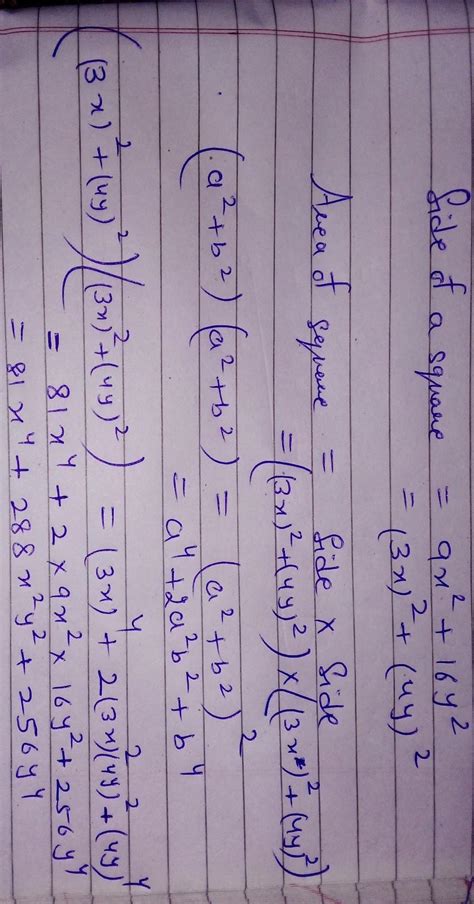 Side of a square = 9x² + 16y²
= (3x)² + (4y)²
Area of square = Side × Side
= ((3x)² + (4y)²) × ((3x)² + (4y)²)
(a² + b²) (a² + b²) = (a² + b²)²
= a⁴ + 2a²b² + b⁴
((3x)² + (4y)²) ((3x)² + (4y)²) = (3x)⁴ + 2(3x)²(4y)² + (4y)⁴
= 81x⁴ + 2 × 9x² × 16y² + 256y⁴
= 81x⁴ + 288x²y² + 256y⁴